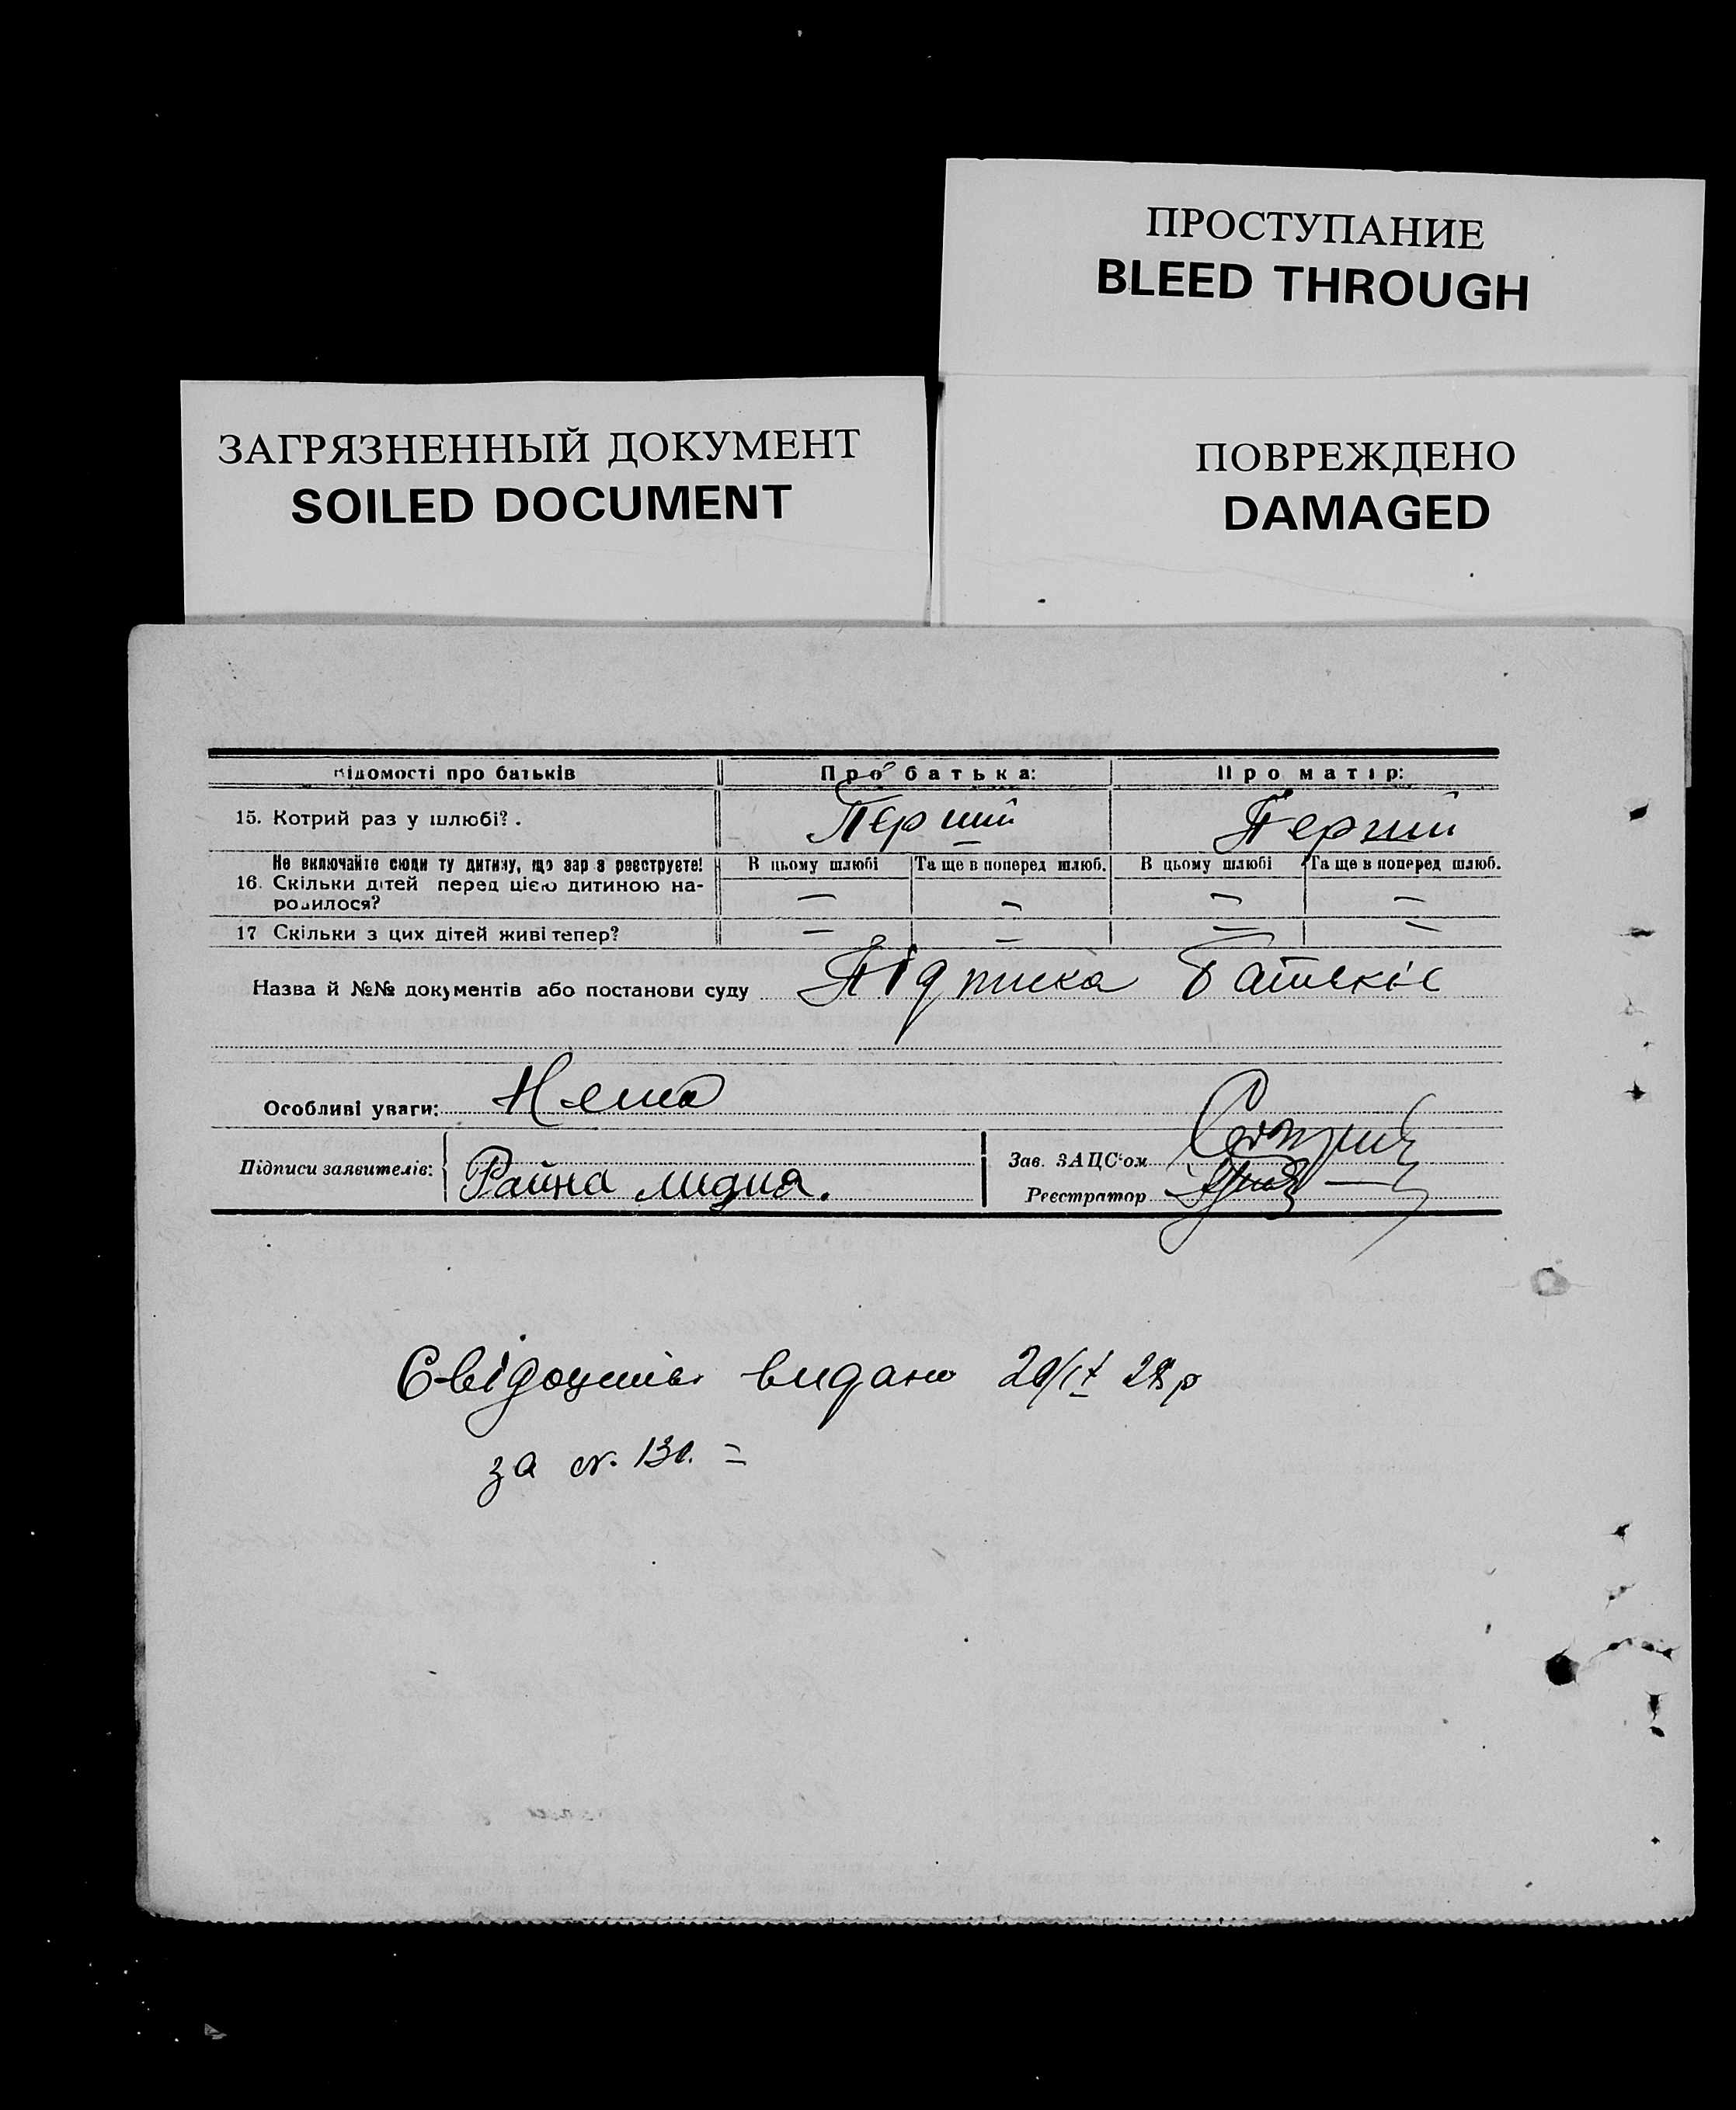 ПРОСТУПАНИЕ
BLEED THROUGH
ЗАГРЯЗНЕННЫЙ ДОКУМЕНТ
SOILED DOCUMENT
ПОВРЕЖДЕНО
DAMAGED
Відомості про батьків Про батька: Про матір:
15. Котрий раз у шлюбі?. Перший Перший
Не включайте сюди ту дитину, що зараз реєструєте! В цьому шлюбі Та ще в поперед шлюб. В цьому шлюбі Та ще в поперед шлюб.
16. Скільки дітей перед цією дитиною на-
родилося? — — — —
17 Скільки з цих дітей живі тепер? — — — —
Назва й №№ документів або постанови суду Підписка Батьків
Особливі уваги: Нема
Підписи заявителів: Райна Лидия. Зав. ЗАЦС'ом
Реєстратор
Свідоцтво видано 28 р
за №.